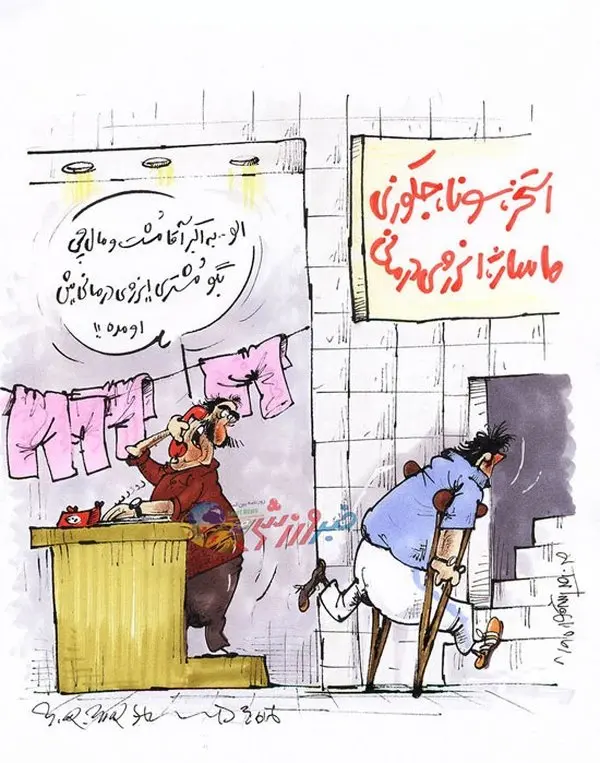 استخر، سونا، جکوزی
ماساژ، انرژی درمانی
الو.. به اکبر آقا مُشت و مال چی
بگو مُشتری انرژی درمانی یش
اومده!!
خبر ورزشی